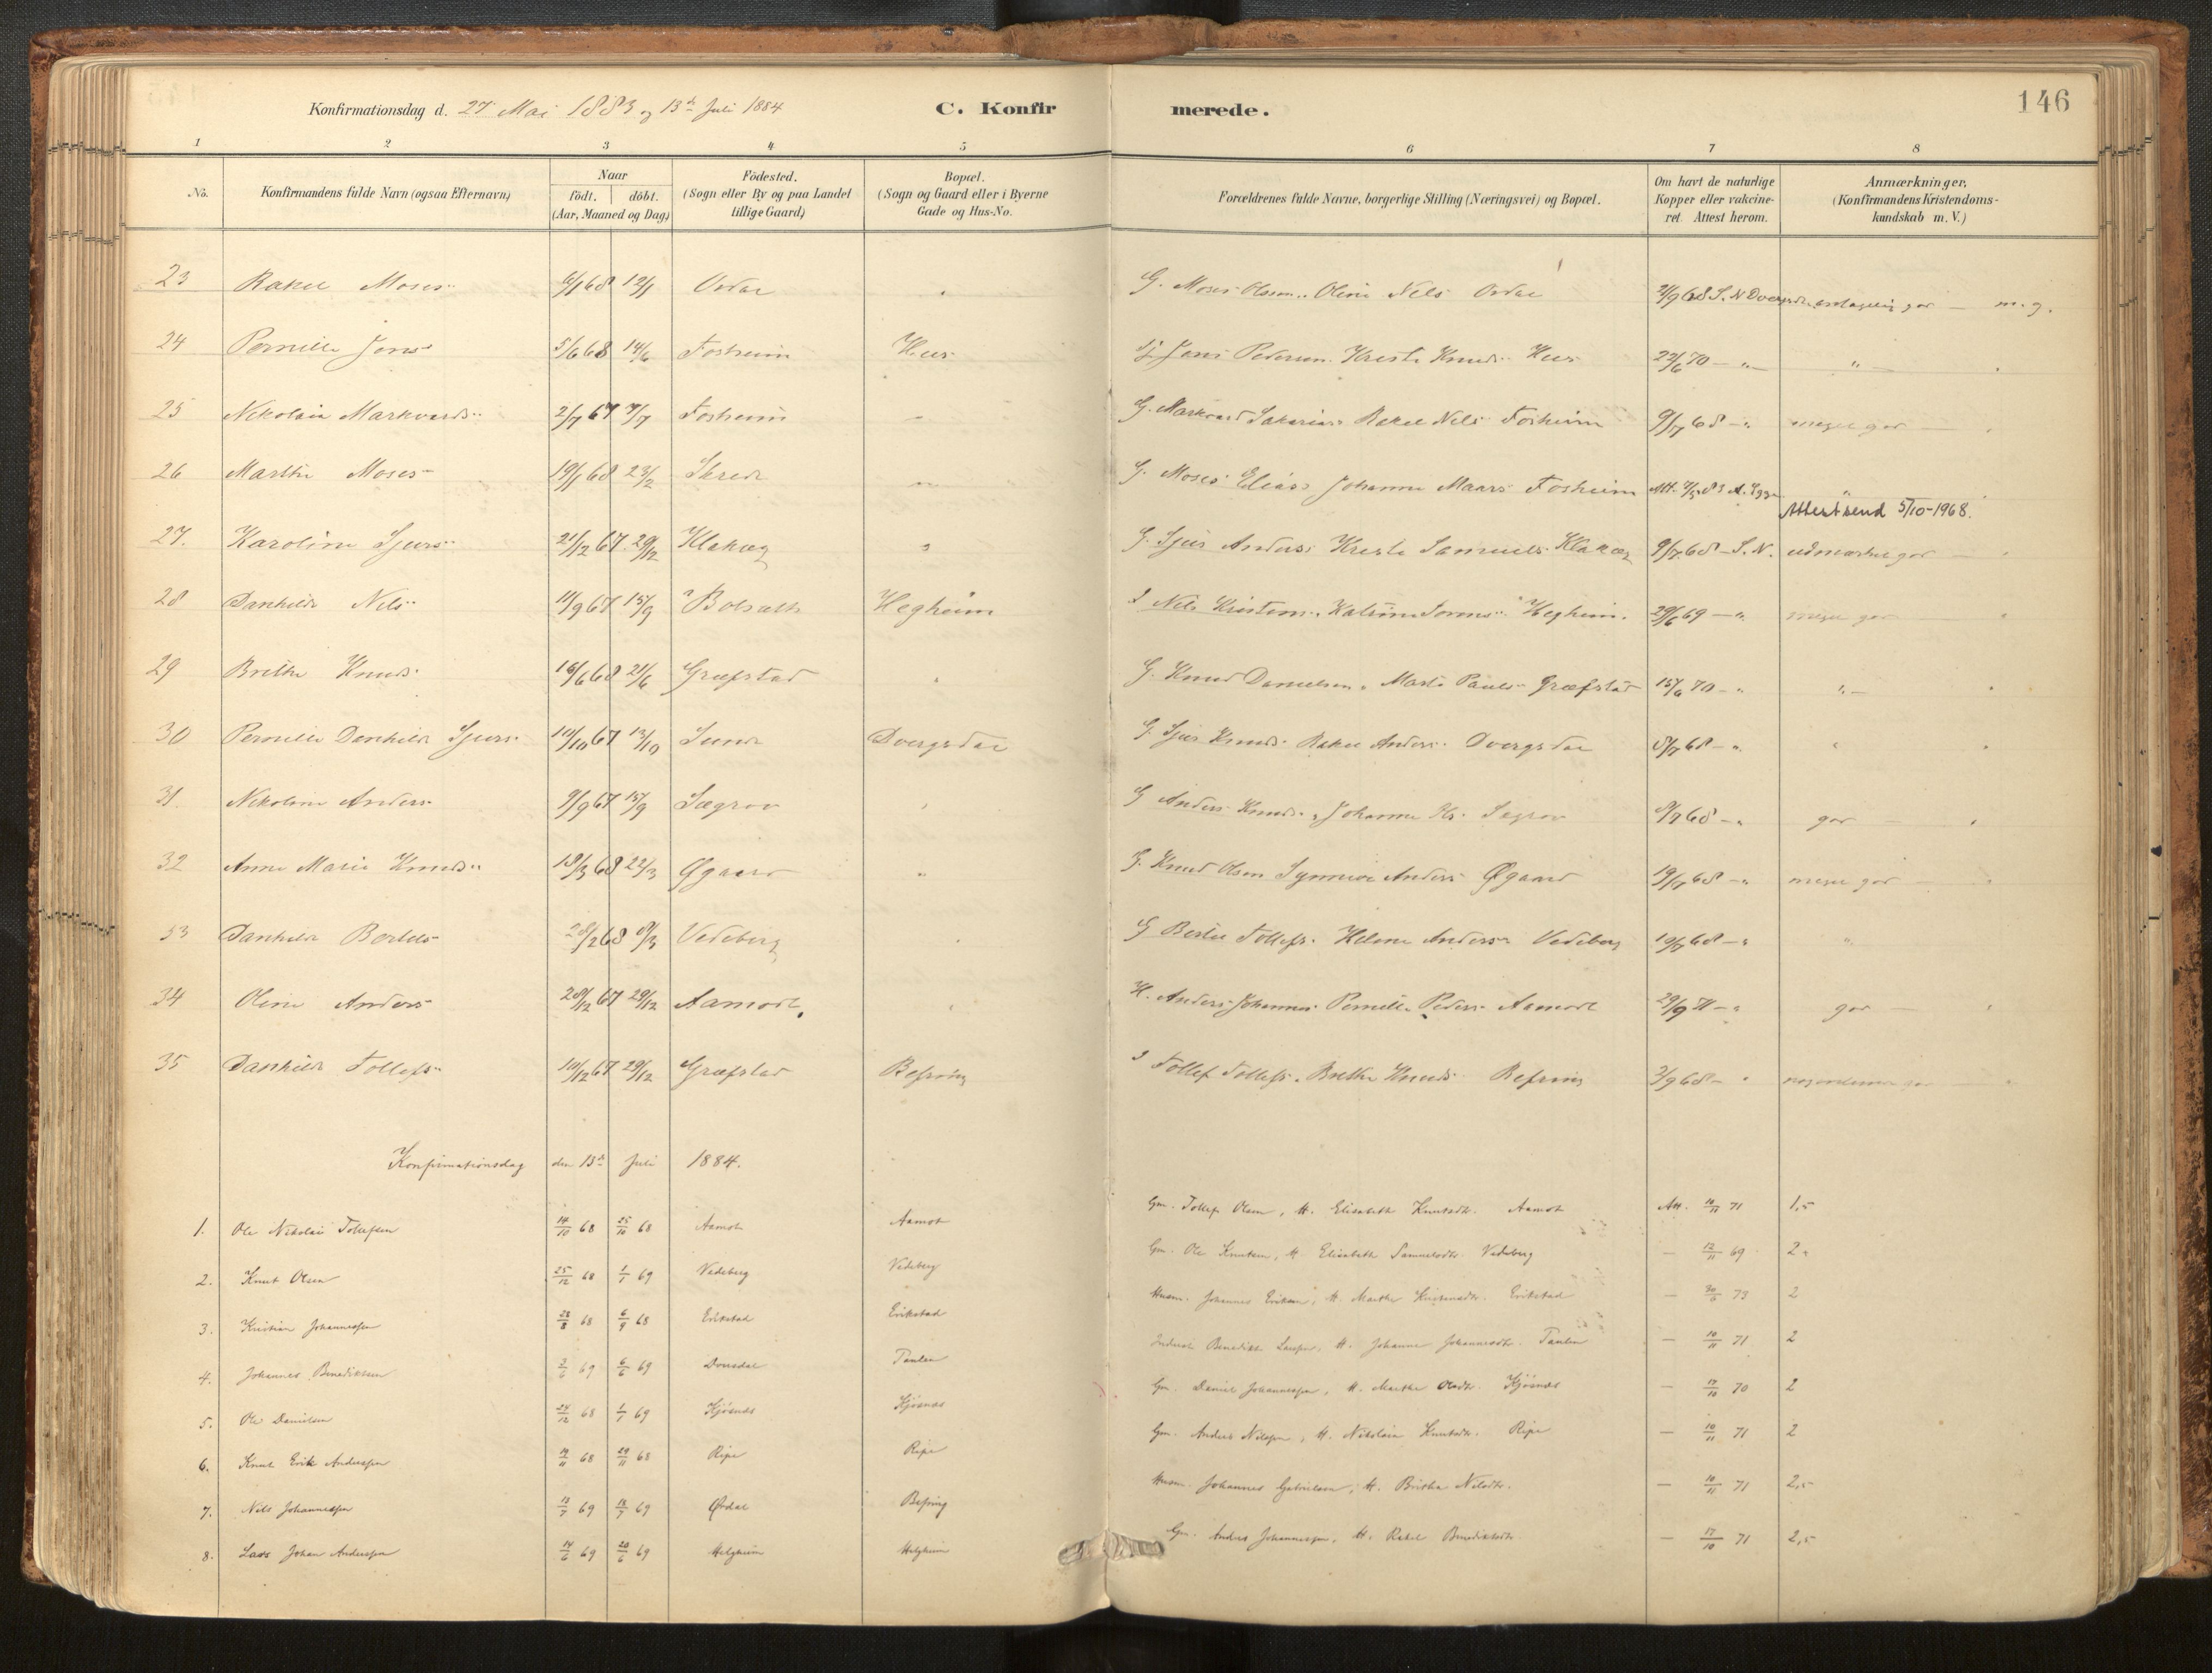 146
Konfirmationsdag d. 27 Mai 1883 og 13de Juli 1884 C. Konfirmerede.
1 2 3 4 5 6 7 8
No. Konfirmandens fulde Navn (ogsaa Efternavn) Naar födt. döbt. (Aar, Maaned og Dag) Födested. (Sogn eller By og paa Landet tillige Gaard) Bopæl. (Sogn og Gaard eller i Byerne Gade og Hus-No. Forældrenes fulde Navne, borgerlige Stilling (Næringsvei) og Bopæl. Om havt de naturlige Kopper eller vakcineret. Attest herom. Anmærkninger. (Konfirmandens Kristendomskundskab m. V.)
23 Rakel Moses 6/1 68 12/1 G. Moses Olsen Oline Nils m. g.
24 Pernille Jens 5/6 68 14/6 Fosheim Hus Jens Pedersen Kreste Knuds Hus 22/6 70 — " —
25 Nikolaia Markvards 2/7 67 7/7 Fosheim G. Markvard Sakarias Rakel Nils Fosheim 9/7 68 — " meget god
26 Marthe Moses 19/1 68 23/2 G. Moses Elias Johanne Fosheim Att. 7/5 83
Attest send 5/10-1968.
27. Karoline Sjurs 21/12 67 29/12 Klakeg G. Sjur Anders Kreste Samuels Klakeg 9/7 68 — S. N. udmærket god
28 Danhild Nils 11/9 67 15/9 Hegheim Nils Kristens Katrine Hegheim. 29/6 69 — " meget god
29 Brithe Knuds 16/6 68 21/6 Græfstad G. Knud Danielsen Marte Pauls Græfstad 15/6 70 — "
30 Pernille Danhild Sjurs 10/10 67 13/10 Sunde Dvergsdal G. Sjur Knuds Rakel Anders Dvergsdal 8/7 68 — "
31. Nikoline Anders 9/9 67 15/9 Sægrov G Anders Knuds Johanne Sægrov 8/7 68 — " god
32 Anne Marie Knuds 18/3 68 22/3 Øgaard G. Knud Olsen Synneve Anders Øgaard 19/7 68 — " meget god
33 Danhild Bertels 28/2 68 8/3 Vedeberg G Bertel Tollefs Helene Anders Vedeberg 19/7 68 — "
34 Oline Anders 28/12 67 29/12 Aamodt. H. Anders Johannes Pernille Peders Aamodt 29/9 71 — " god
35 Danhild Tollefs 10/12 67 29/12 Græfstad Befring Tollef Tollefs Brithe Knuds Befring 3/9 68 — "
Konfirmationsdag den 13de Juli 1884.
1. Ole Nikolai Tollefsen 14/10 68 25/10 68 Aamot Aamot Gm. Tollef Olsen, H. Elisabeth Knutsdtr. Aamot Att. 10/11 71 1,5
2. Knut Olsen 25/12 68 1/1 69 Vedeberg Vedeberg Gm. Ole Knutsen, H. Elisabeth Samuelsdtr. Vedeberg — 12/11 69 2.
3. Kristian Johannessen 28/8 68 6/9 68 Erikstad Erikstad Husm. Johannes Eriksen, H. Marthe Kristensdtr. Erikstad — 30/5 73 2
4. Johannes Benediktsen 2/6 69 6/6 69 Benedikt Larsen, H. Johanne Johannesdtr. — 10/11 71 2
5. Ole Danielsen 24/12 68 1/1 69 Kjösnes Kjösnes Gm. Daniel Johannessen, H. Marthe Olsdtr. Kjösnes — 17/10 70 2
6. Knut Erik Anderssen 19/11 68 29/11 68 Ripe Ripe Gm. Anders Nilssen, H. Nikolaia Knutsdtr. Ripe — 10/11 71 2
7. Nils Johannessen 13/7 69 18/7 69 Ørdal Befring Husm. Johannes Gabrielsen, H. Brithe Nilsdtr. — 10/11 71 2,5
8. Lars Johan Anderssen 14/6 69 20/6 69 Helgheim Helgheim Gm. Anders Johannessen, H. Rakel Benediktsdtr. — 17/10 71 2,5